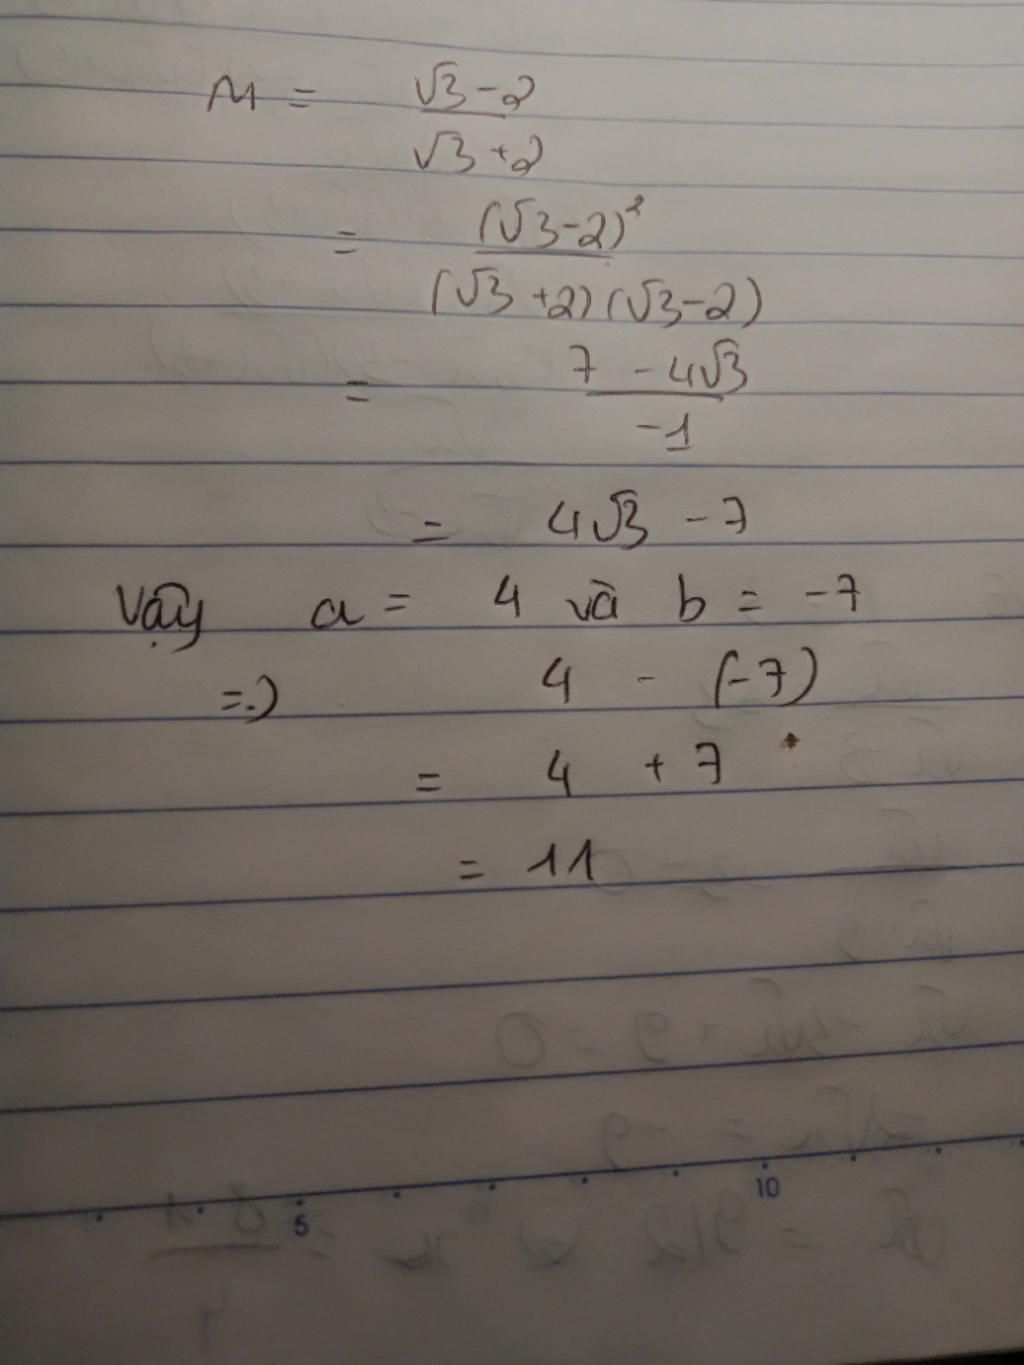 M = √3-2 / √3+2
= (√3-2)² / (√3+2)(√3-2)
= 7 - 4√3 / -1
= 4√3 - 7
Vậy a = 4 và b = -7
=) 4 - (-7)
= 4 + 7
= 11
5 10